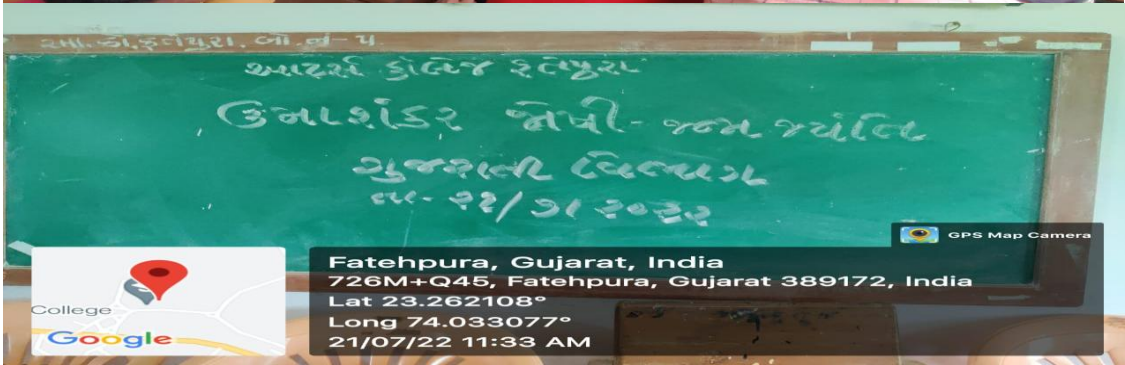 આ. કો. ફતેપુરા. બો. નં- ૫
આર્ટસ કોલેજ ફતેપુરા
ઉમાશંકર જોષી- જન્મ જયંતિ
ગુજરાતી વિભાગ
તા- ૨૧/૭/૨૦૨૨
GPS Map Camera
Fatehpura, Gujarat, India
726M+Q45, Fatehpura, Gujarat 389172, India
Lat 23.262108°
Long 74.033077°
21/07/22 11:33 AM
College
Google